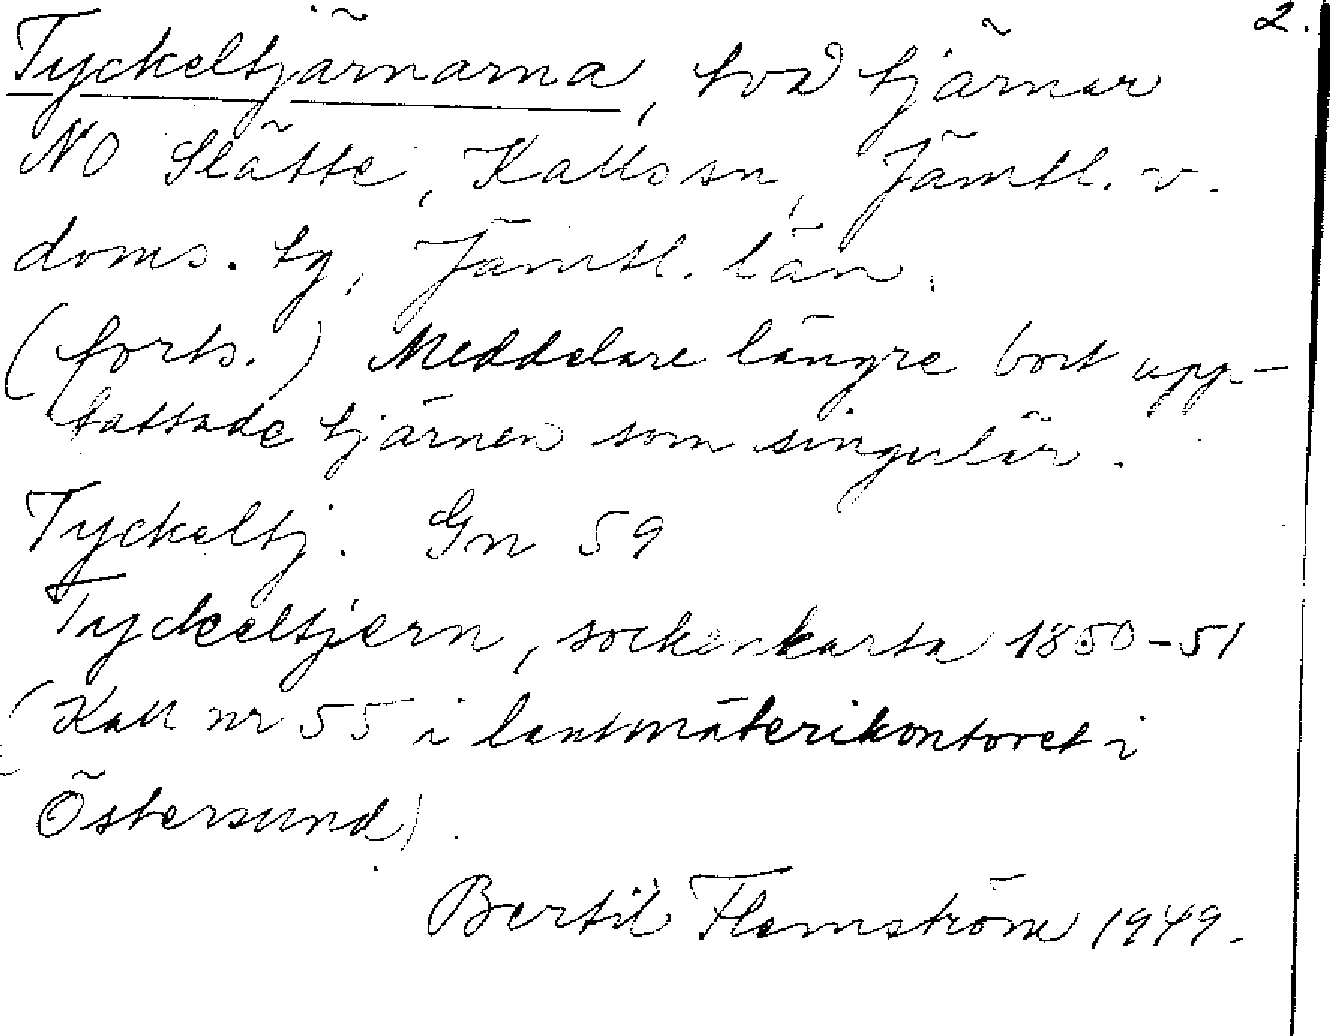 2.
Tyckeltjärnarna, två tjärnar
NO Slätte, Kalls sn, Jämtl. v.
doms. tg, Jämtl. län.
(forts.) Meddelare längre bort upp-
fattade tjärnen som singulär.
Tyckeltj. Gn 59
Tyckeltjern, sockenkarta 1850-51
(Kall nr 55 i lantmäterikontoret i
Östersund).
Bertil Flemström 1949.